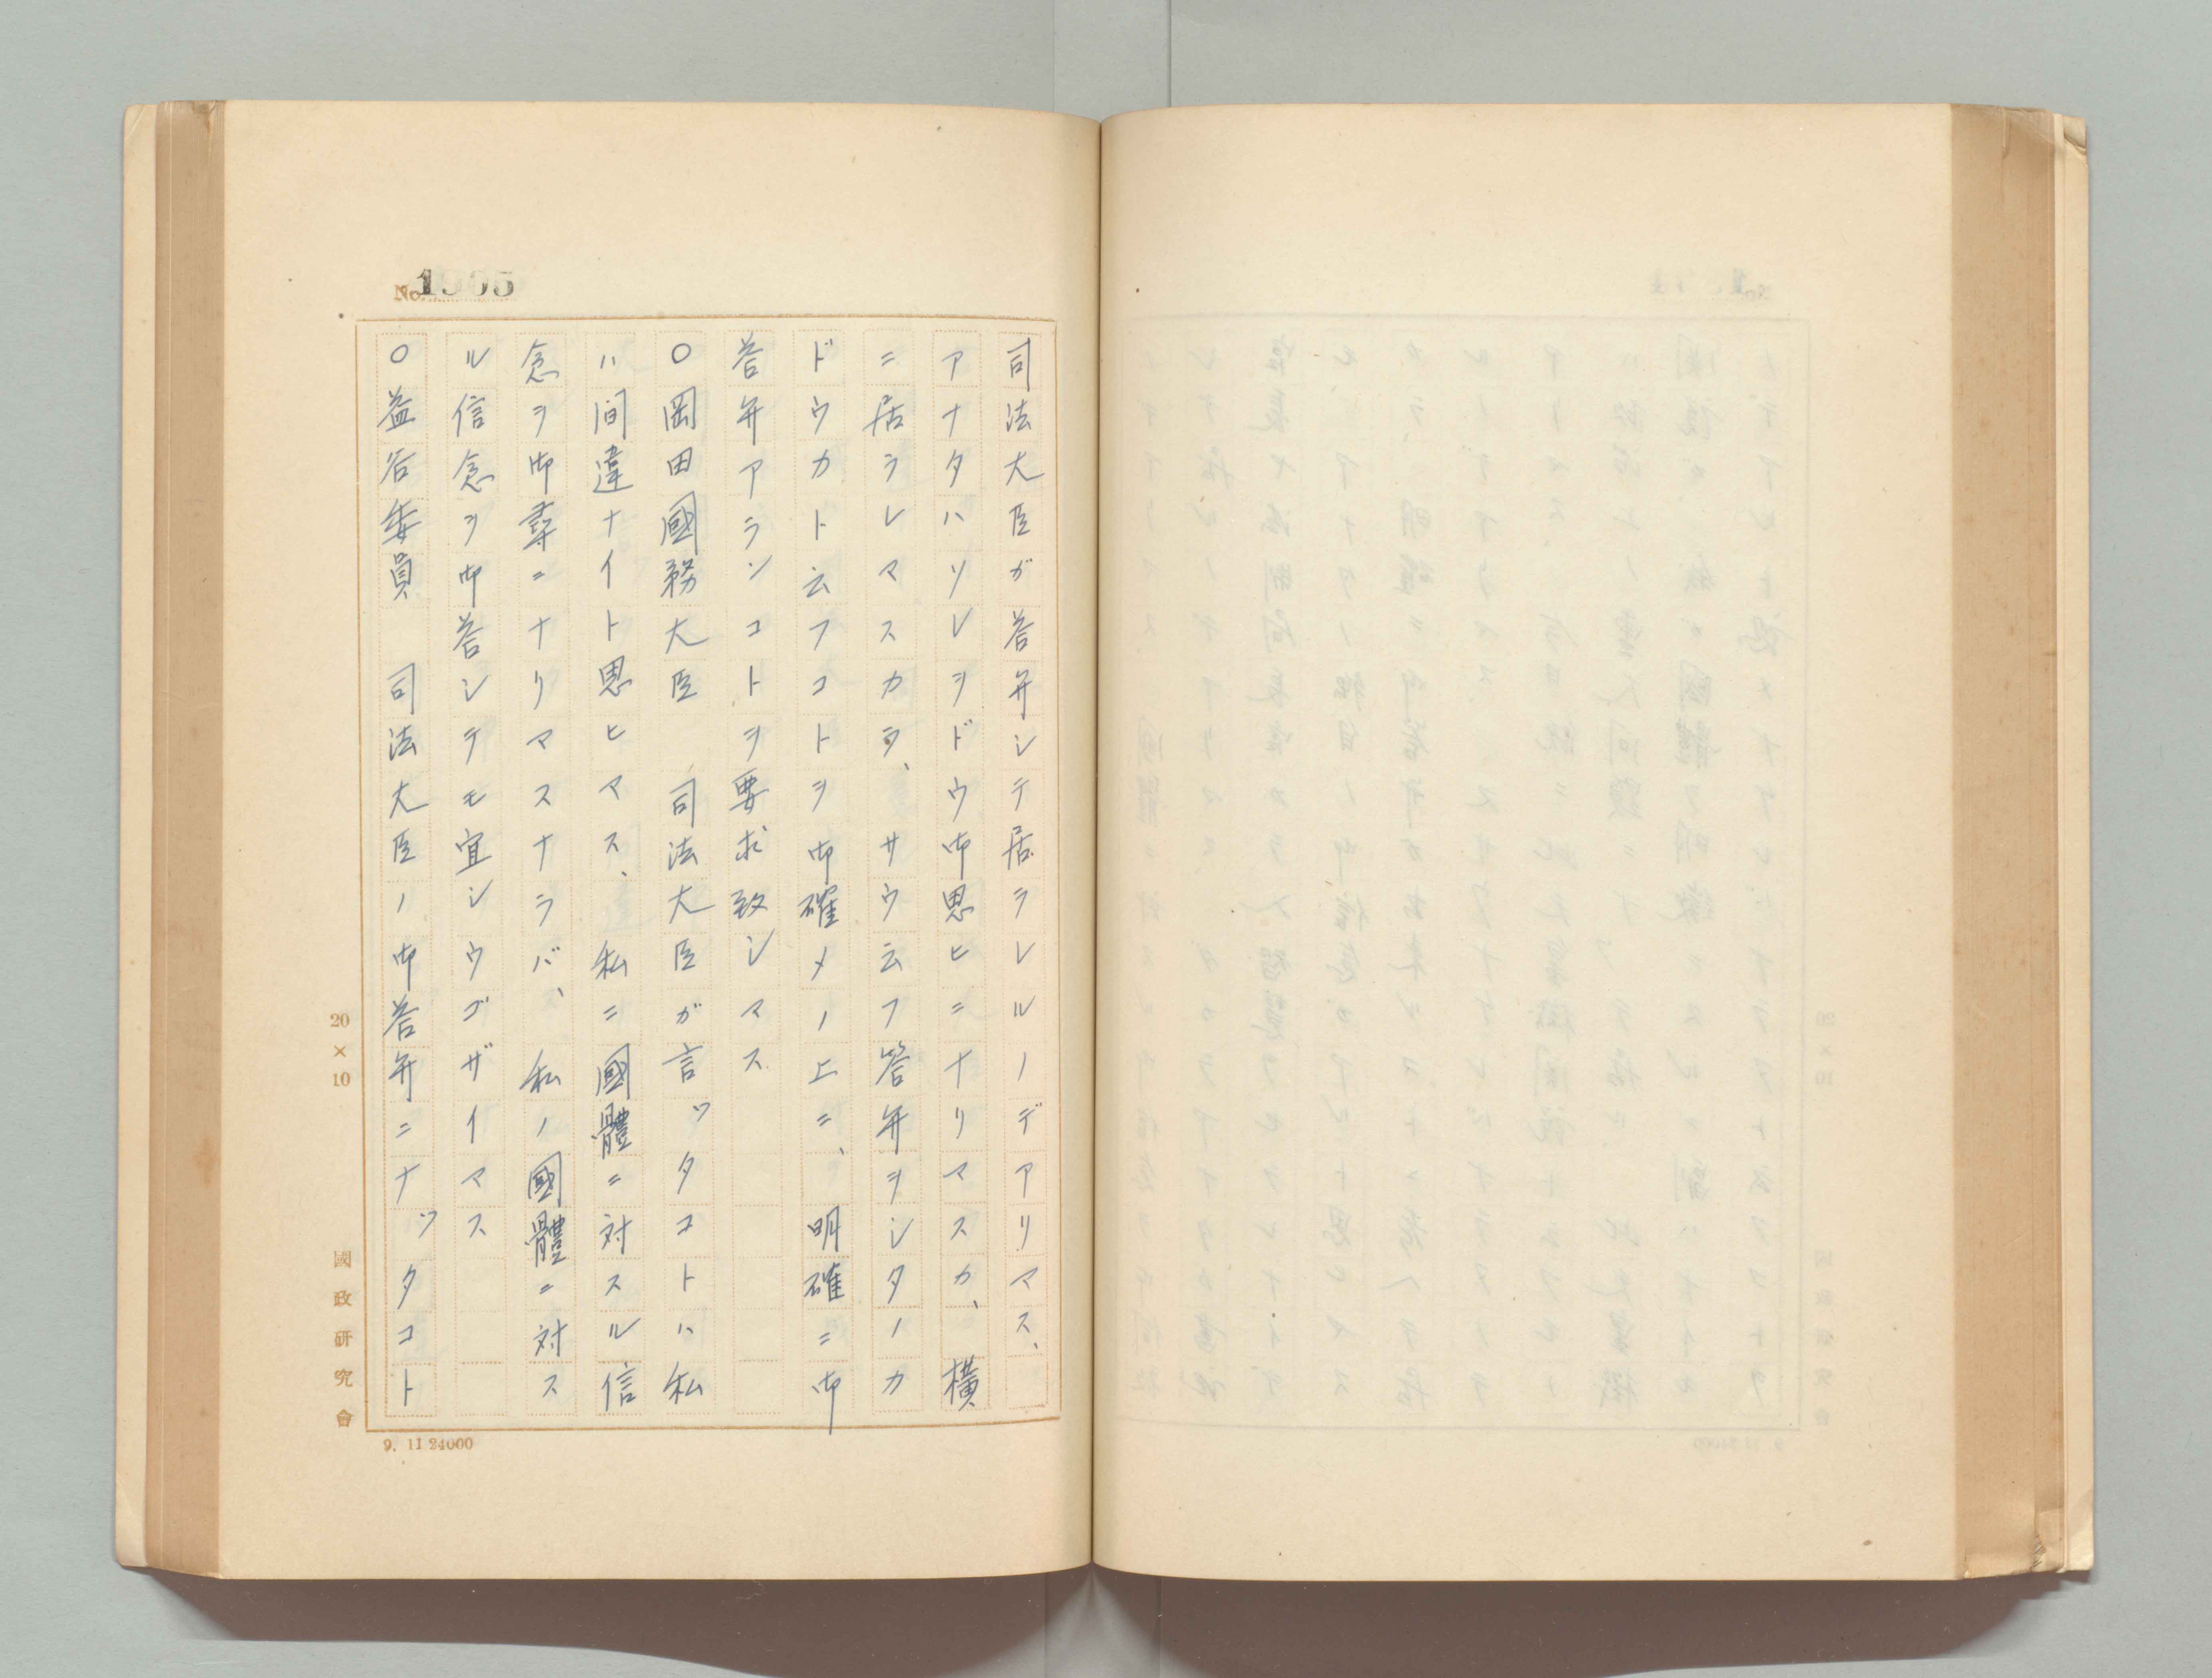 No. 1905
司法大臣ガ荅弁シテ居ラレルノデアリマス、
アナタハソレヲドウ御思ヒニナリマスカ、横
ニ居ラレマスカラ、サウ云フ答弁ヲシタノカ
ドウカト云フコトヲ御確メノ上ニ、明確ニ御
荅弁アランコトヲ要求致シマス
〇岡田國務大臣　司法大臣ガ言ツタコトハ私
ハ間違ナイト思ヒマス、私ニ國體ニ対スル信
念ヲ御尋ニナリマスナラバ、私ノ國體ニ対ス
ル信念ヲ御荅シテモ宜シウゴザイマス
〇益谷委員　司法大臣ノ御荅弁ニナツタコト
20×10
國政研究會
9. 11 24000